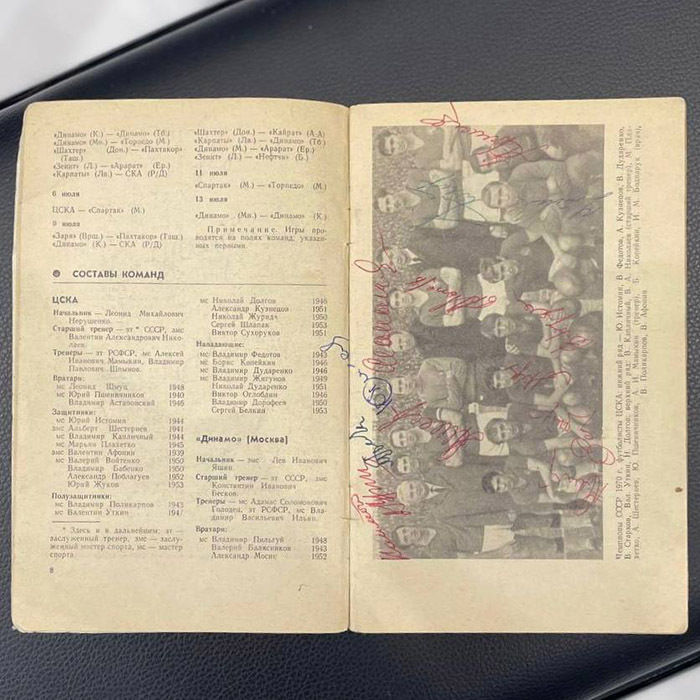 «Динамо» (К.) — «Динамо» (Тб.)
«Динамо» (Мн.) — «Торпедо» (М.)
«Шахтер» (Дон.) — «Пахтакор» (Таш.)
«Зенит» (Л.) — «Арарат» (Ер.)
«Карпаты» (Лв.) — СКА (Р/Д)
6 июля
ЦСКА — «Спартак» (М.)
9 июля
«Заря» (Врш.) — «Пахтакор» (Таш.)
«Динамо» (К.) — СКА (Р/Д)
«Шахтер» (Дон.) — «Кайрат» (А-А)
«Карпаты» (Лв.) — «Динамо» (Тб.)
«Динамо» (М.) — «Арарат» (Ер.)
«Зенит» (Л.) — «Нефтчи» (Б.)
11 июля
«Спартак» (М.) — «Торпедо» (М.)
13 июля
«Динамо» (Мн.) — «Динамо» (К.)
Примечание. Игры про-
водятся на полях команд, указан-
ных первыми.
СОСТАВЫ КОМАНД
ЦСКА
Начальник — Леонид Михайлович
Нерушенко.
Старший тренер — зт * СССР, змс
Валентин Александрович Нико-
лаев.
Тренеры — зт РСФСР, мс Алексей
Иванович Мамыкин, Владимир
Павлович Шлымов.
Вратари:
мс Леонид Шмуц 1948
мс Юрий Пшеничников 1940
Владимир Астаповский 1946
Защитники:
мс Юрий Истомин 1944
змс Альберт Шестернев 1941
мс Владимир Капличный 1944
мс Марьян Плахетко 1945
змс Валентин Афонин 1939
мс Валерий Войтенко 1950
Владимир Бабенко 1950
Александр Поблагуев 1952
Юрий Жуков 1953
Полузащитники:
мс Владимир Поликарпов 1943
мс Валентин Уткин 1947
* Здесь и в дальнейшем: зт —
заслуженный тренер, змс — заслу-
женный мастер спорта, мс — мастер
спорта.
8
мс Николай Долгов 1946
Александр Кузнецов 1951
Николай Журид 1950
Сергей Шлапак 1953
Виктор Сухоруков 1951
Нападающие:
мс Владимир Федотов 1943
мс Борис Копейкин 1946
мс Владимир Дударенко 1946
мс Владимир Жигунов 1949
Николай Дударенко 1951
Виктор Оглоблин 1946
Владимир Дорофеев 1950
Сергей Белкин 1953
«Динамо» (Москва)
Начальник — змс Лев Иванович
Яшин.
Старший тренер — зт СССР, змс
Константин Иванович
Бесков.
Тренеры — мс Адамас Соломонович
Голодец, зт РСФСР, мс Вла-
димир Васильевич Ильин.
Вратари:
мс Владимир Пильгуй 1948
Валерий Балясников 1943
Александр Мосин 1952
Чемпионы СССР 1970 г., футболисты ЦСКА: нижний ряд — Ю. Истомин, В. Федотов, А. Кузнецов, В. Дударенко,
В. Старков, Вал. Уткин, Н. Долгов; верхний ряд: В. Капличный, В. А. Николаев (старший тренер), М. Пла-
хетко, А. Шестернев, Ю. Пшеничников, А. И. Мамыкин (тренер), Б. Копейкин, И. М. Боднарук (врач),
В. Поликарпов, В. Афонин